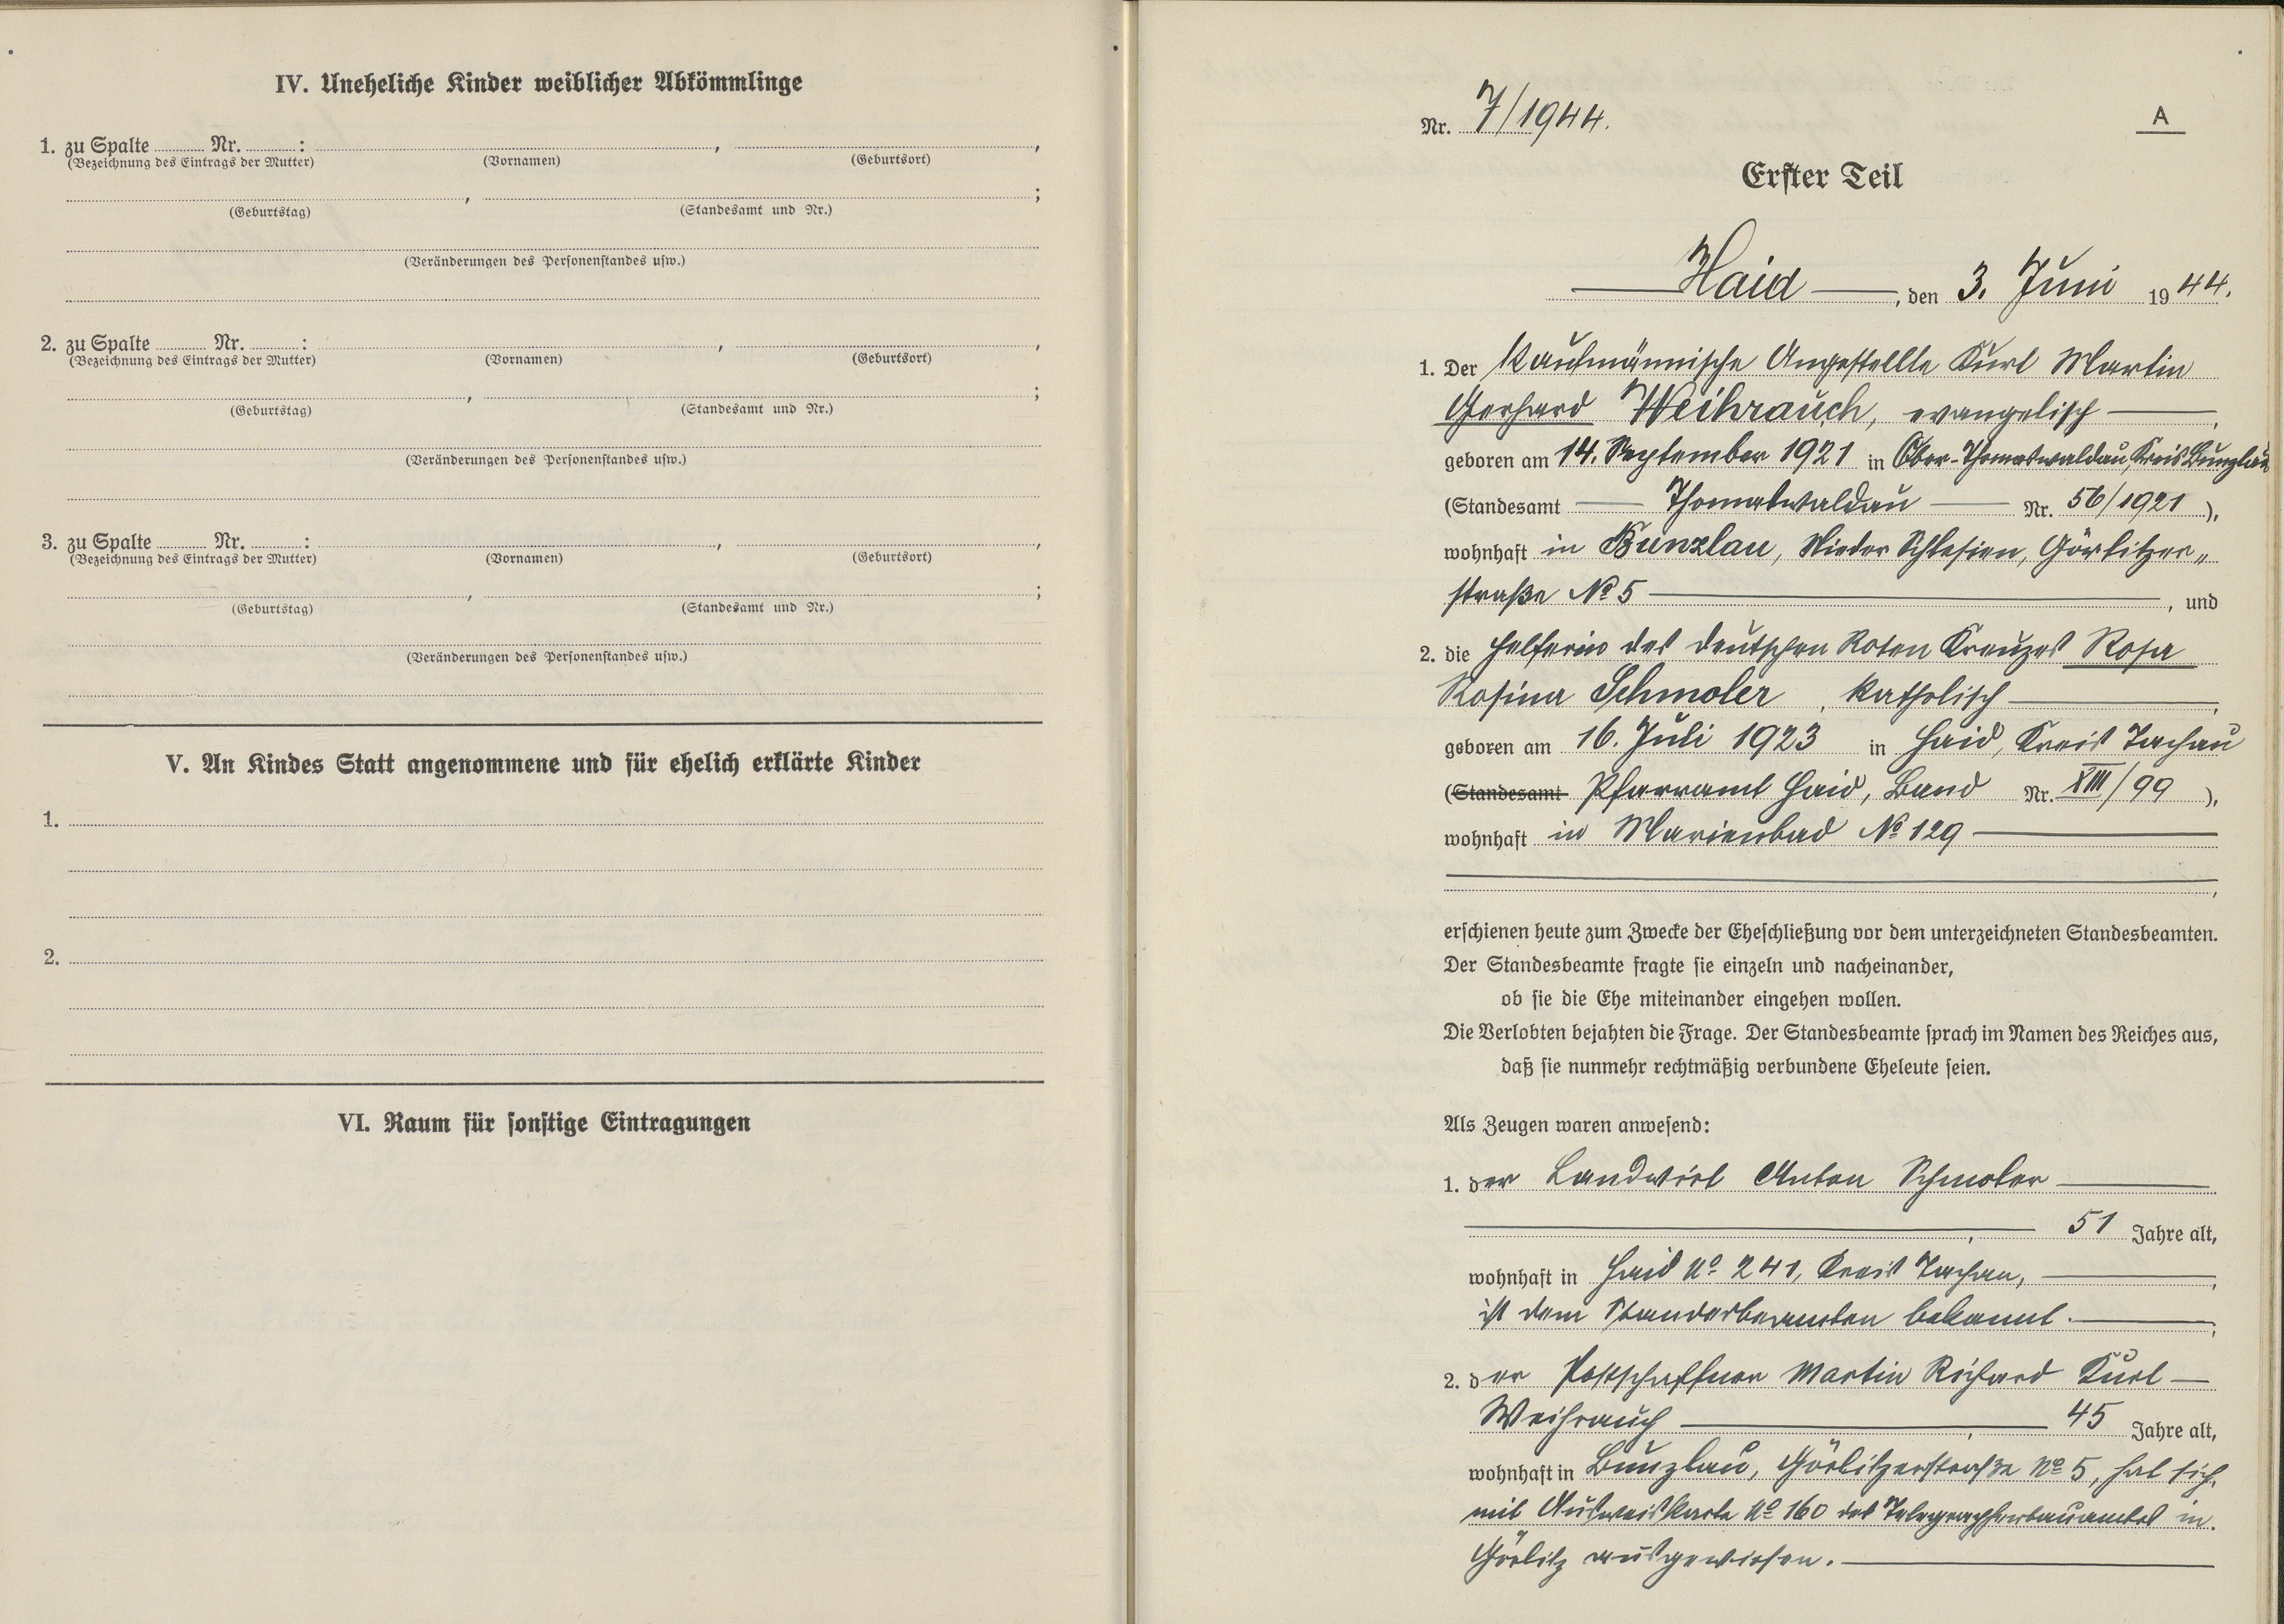 IV. Uneheliche Kinder weiblicher Abkömmlinge
1. zu Spalte ........ Nr. ........ : ........ , ........ ,
(Bezeichnung des Eintrags der Mutter) (Vornamen) (Geburtsort)
........ , ........ ;
(Geburtstag) (Standesamt und Nr.)
(Veränderungen des Personenstandes usw.)
2. zu Spalte ........ Nr. ........ : ........ , ........ ,
(Bezeichnung des Eintrags der Mutter) (Vornamen) (Geburtsort)
........ , ........ ;
(Geburtstag) (Standesamt und Nr.)
(Veränderungen des Personenstandes usw.)
3. zu Spalte ........ Nr. ........ : ........ , ........ ,
(Bezeichnung des Eintrags der Mutter) (Vornamen) (Geburtsort)
........ , ........ ;
(Geburtstag) (Standesamt und Nr.)
(Veränderungen des Personenstandes usw.)
V. An Kindes Statt angenommene und für ehelich erklärte Kinder
1.
2.
VI. Raum für sonstige Eintragungen
Nr. 7/1944. A
Erster Teil
Haid, den 3. Juni 1944.
1. Der kaufmännische Angestellte Kurt Martin
Gerhard Weihrauch, evangelisch,
geboren am 14. September 1921 in Ober-Thomaswaldau, Kreis Bunzlau
(Standesamt Thomaswaldau Nr. 56/1921 ),
wohnhaft in Bunzlau, Nieder Schlesien, Görlitzer„
straße № 5, und
2. die Helferin des deutschen Roten Kreuzes Rosa
Rosina Schmoler, katholisch,
geboren am 16. Juli 1923 in Haid, Kreis Tachau
(Standesamt Pfarramt Haid, Band Nr. XIII/99 ),
wohnhaft in Marienbad № 129
,
erschienen heute zum Zwecke der Eheschließung vor dem unterzeichneten Standesbeamten.
Der Standesbeamte fragte sie einzeln und nacheinander,
ob sie die Ehe miteinander eingehen wollen.
Die Verlobten bejahten die Frage. Der Standesbeamte sprach im Namen des Reiches aus,
daß sie nunmehr rechtmäßig verbundene Eheleute seien.
Als Zeugen waren anwesend:
1. der Landwirt Anton Schmoler
, 51 Jahre alt,
wohnhaft in Haid № 241, Kreis Tachau,
ist dem Standesbeamten bekannt.
2. der Postschaffner Martin Richard Kurt
Weihrauch, 45 Jahre alt,
wohnhaft in Bunzlau, Görlitzerstraße № 5, hat sich
mit Ausweiskarte № 160 des Telegraphenbauamtes in
Görlitz ausgewiesen.